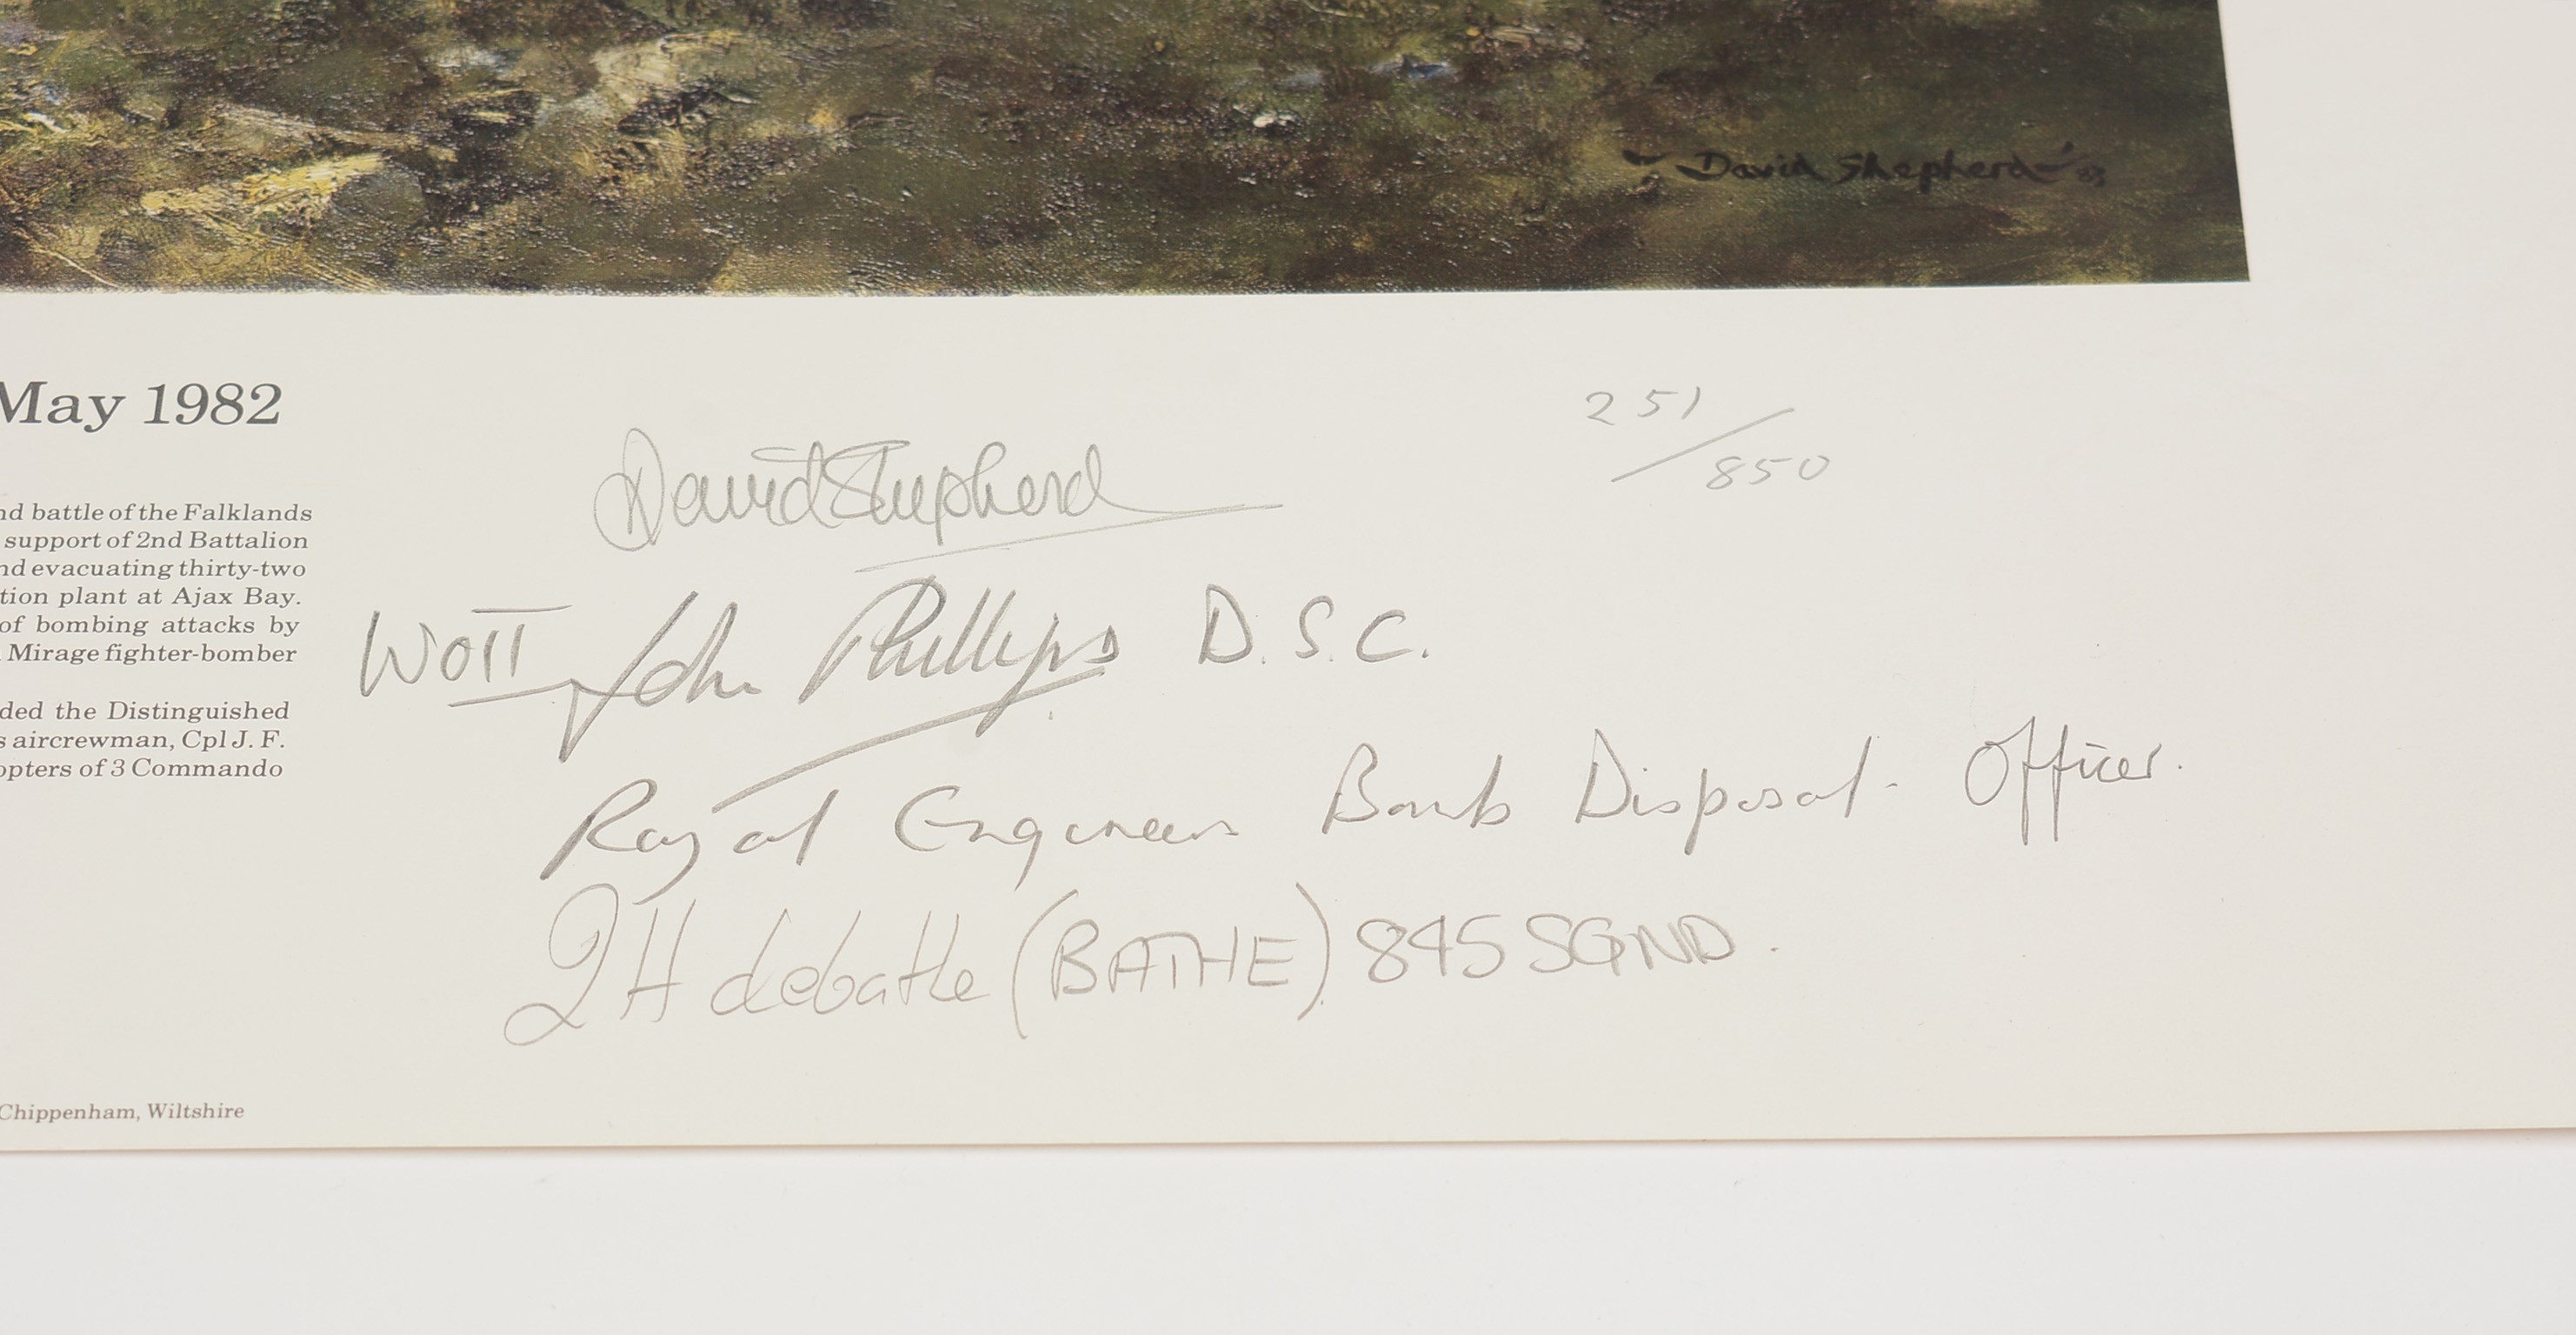 David Shepherd '83
May 1982
251/850
David Shepherd
nd battle of the Falklands
support of 2nd Battalion
nd evacuating thirty-two
tion plant at Ajax Bay.
of bombing attacks by
Mirage fighter-bomber
ded the Distinguished
s aircrewman, Cpl J. F.
opters of 3 Commando
WOII John Phillips D.S.C.
Royal Engineers Bomb Disposal Officer.
(BATHE) 845 SQND.
Chippenham, Wiltshire